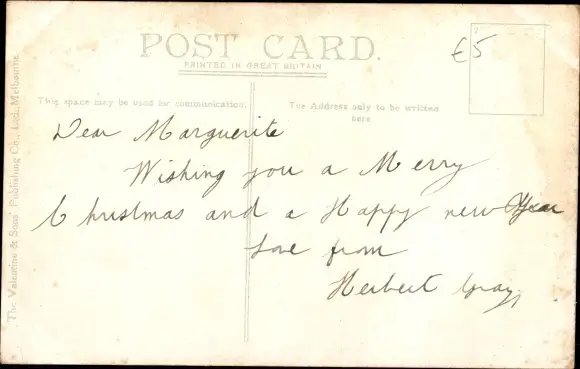 POST CARD.
PRINTED IN GREAT BRITAIN
£5
This space may be used for communication.
The Address only to be written
here
The Valentine & Sons' Publishing Co., Ltd., Melbourne
Dear Marguerite
Wishing you a Merry
Christmas and a Happy new Year
Love from
Herbert Gray,